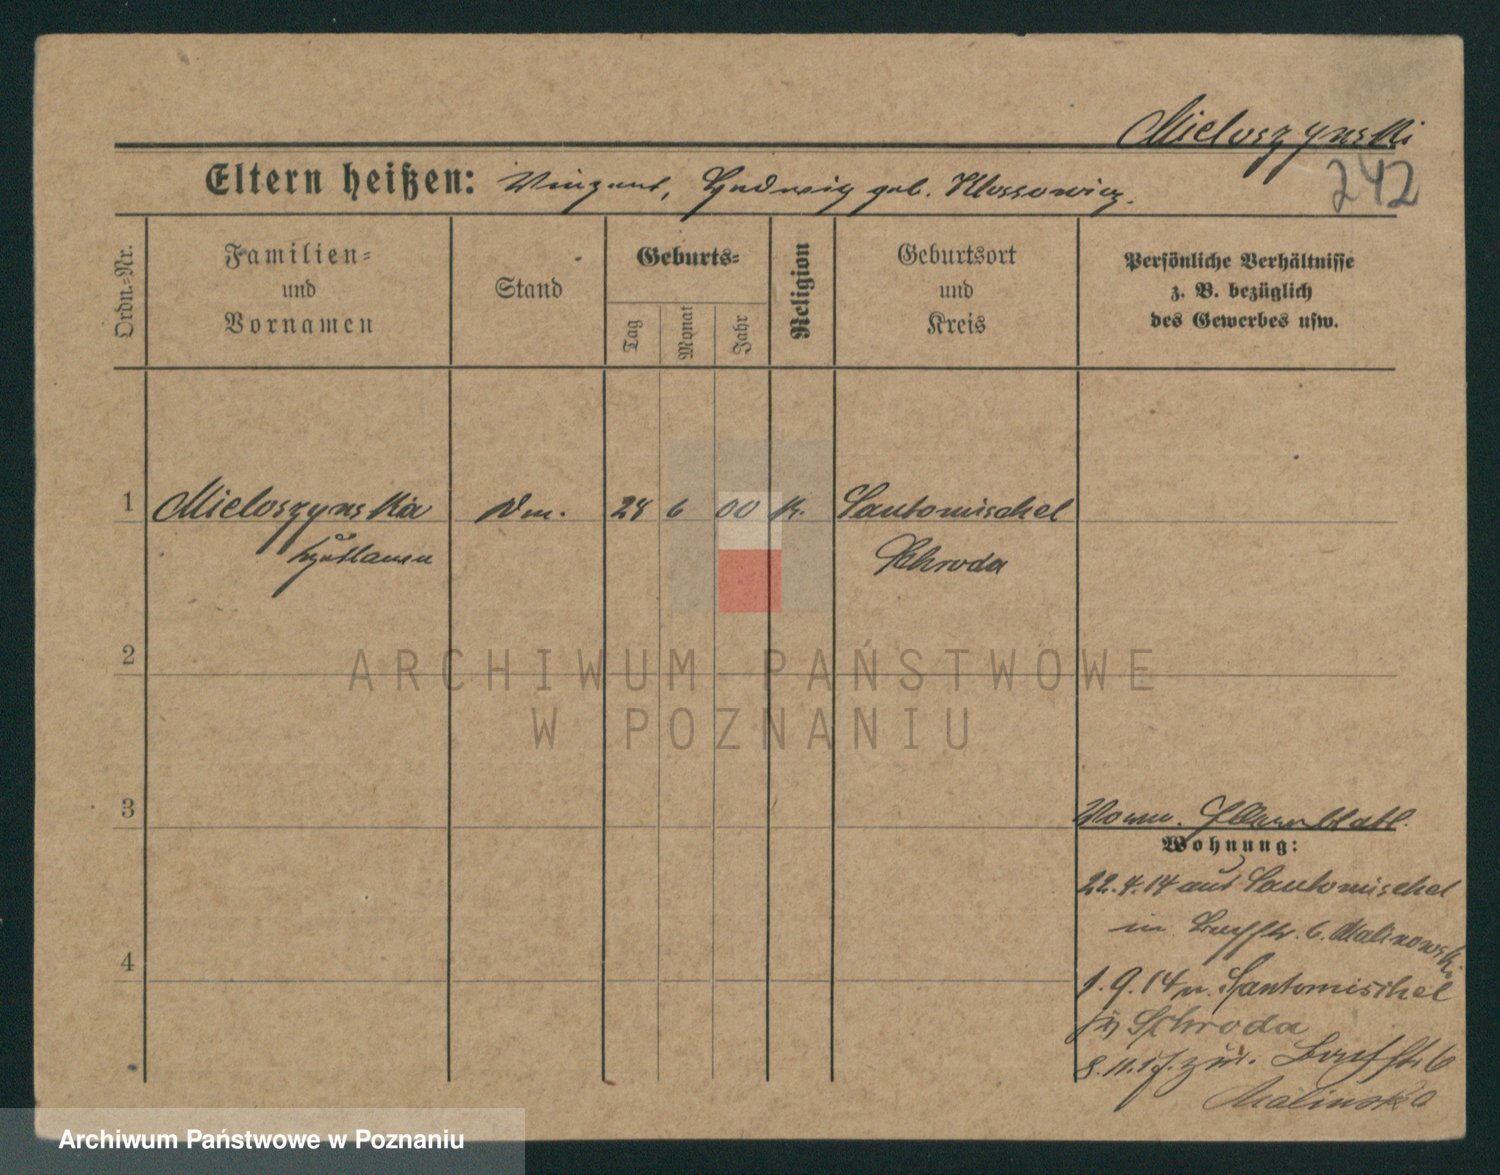 Mieloszynski
242
Eltern heißen: Vinzent, Hedwig geb. Klossowicz.
Ordn.-Nr.
Familien-
und
Vornamen
Stand
Geburts-
Tag
Monat
Jahr
Religion
Geburtsort
und
Kreis
Persönliche Verhältnisse
z. B. bezüglich
des Gewerbes usw.
1 Mieloszynska Dm. 28 6 00 k. Santomischel
Schroda
2
ARCHIWUM PAŃSTWOWE
W POZNANIU
3
Wohnung:
22.4.14 aus Santomischel
in 6. Malinowski
4
1.9.14 n. Santomischel
Schroda
zur. 6
Archiwum Państwowe w Poznaniu